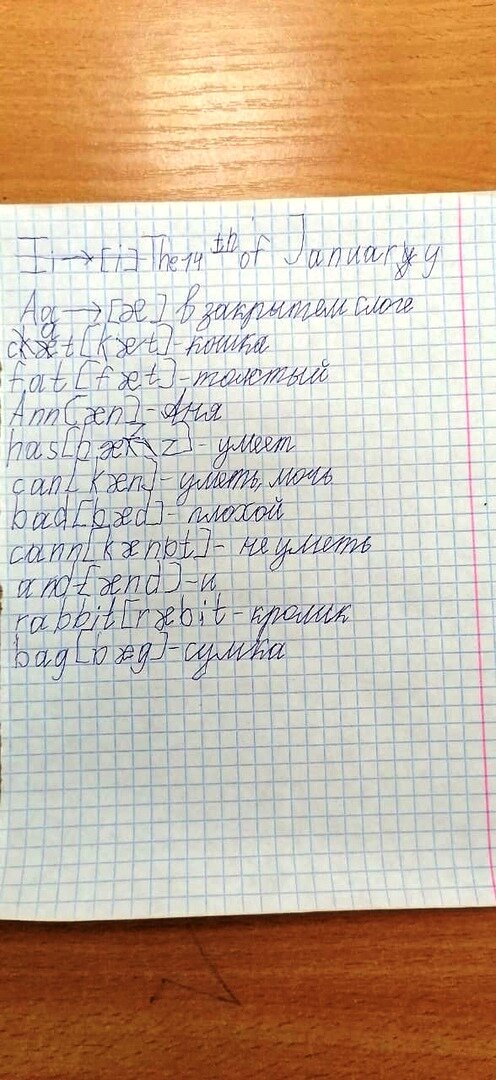 Ii→[i] The 14th of January y
Aa→[æ] в закрытем слоге
cat [kæt]-кошка
fat [fæt]-толстый
Ann[æn]-Аня
has[hæz]-умеет
can[kæn]-уметь, мочь
bad[bæd]-плохой
cann[kænbt]-не уметь
and-[ænd]-и
rabbit[ræbit-кролик
bag[bæg]-сумка